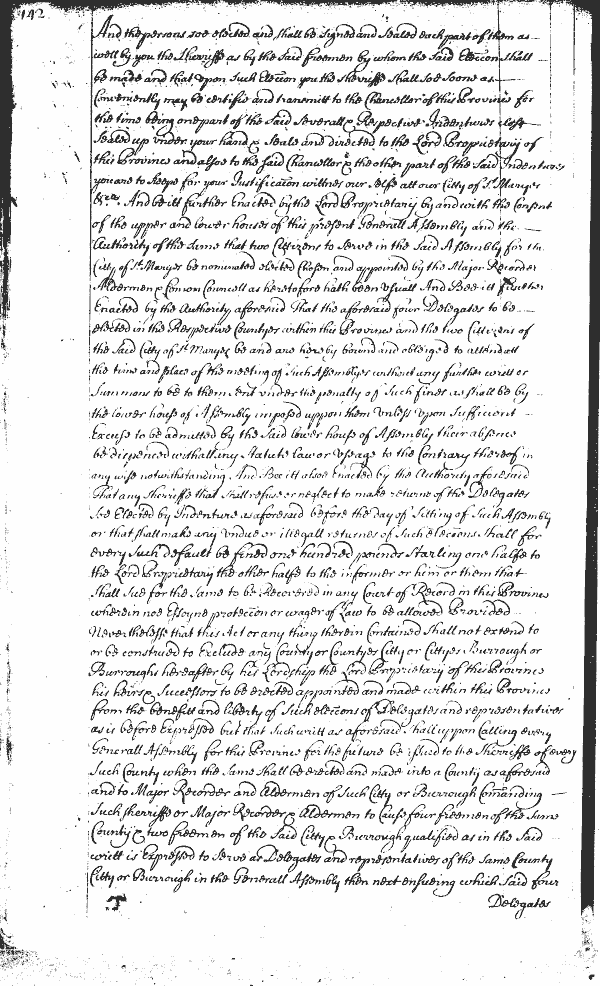 142
And the persons soe elected and shall be signed and sealed each part of them as
well by you the Sherriffe as by the said Freemen by whom the said Eleccon shall
be made and that upon such Eleccon you the Sheriffe shall soe soone as
Conveniently may be certifie and transmitt to the Chancellor of this Province for
the time being one part of the said severall & Respective Indentures close
Sealed up under your hand & Seale and directed to the Lord Proprietary of
this Province and alsoe to the said Chancellor & the other part of the said Indentures
you are to keepe for your Justification wittnes our selfe att our Citty of St. Maryes
&c. And be itt further Enacted by the Lord Proprietary by and with the Consent
of the upper and lower houses of this present Generall Assembly and the
Authority of the same that two Cittizens to serve in the said Assembly for the
Citty of St. Maryes be nominated elected Chosen and appointed by the Major Recorder
Aldermen & Comon Councell as heretofore hath been usuall And Bee itt further
Enacted by the Authority aforesaid That the aforesaid four Delegates to be
elected in the Respective Countyes within this Province and the two Cittizens of
the said Citty of St. Maryes be and are hereby bound and obleiged to attend att
the time and place of the meeting of such Assemblyes without any further writt or
Summons to be to them sent under the penalty of such fines as shall be by
the lower house of Assembly imposed uppon them Unless upon Sufficient
Excuse to be admitted by the said lower house of Assembly their absence
be dispenced withall any Statute Law or Useage to the Contrary thereof in
any wise notwithstanding And Bee itt alsoe Enacted by the Authority aforesaid
That any Sherriffe that shall refuse or neglect to make returne of the Delegates
soe Elected by Indenture as aforesaid before the day of sitting of such Assembly
or that shall make any undue or illegall returnes of such eleccons shall for
every such default be fined one hundred pounds Starling one halfe to
the Lord Proprietary the other halfe to the informer or him or them that
shall sue for the same to be Recovered in any Court of Record in this Province
wherein noe Essoyne proteccon or wager of Law to be allowed Provided
Neverthelesse that this Act or any thing therein contained shall not extend to
or be construed to Exclude any County or Countyes Citty or Cittyes Burrough or
Burroughs hereafter by his Lordship the Lord Proprietary of this Province
his heirs & Successors to be erected appointed and made within this Province
from the benefitt and liberty of such eleccons of Delegates and representatives
as is before expressed but that such writt as aforesaid shall upon calling every
Generall Assembly for this Province for the future be issued to the Sherriffe of every
such County when the same shall be erected and made into a County as aforesaid
and to Major Recorder and Aldermen of such Citty or Burrough Comanding
such sherriffe or Major Recorder & Aldermen to Cause four freemen of the same
County & two freemen of the said Citty & Burrough qualified as in the said
writt is Expressed to serve as Delegates and representatives of the same County
Citty or Burrough in the Generall Assembly then next ensueing which said four
Delegates